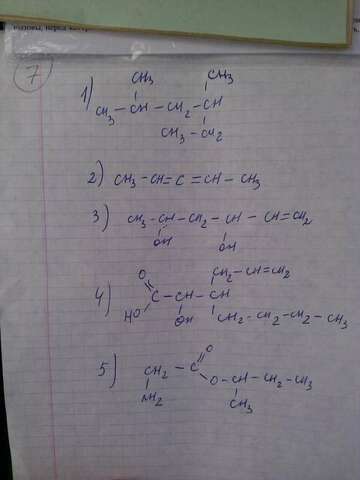 7
CH3 CH3
1) CH3 - CH - CH2 - CH
CH3 - CH2
2) CH3 - CH = C = CH - CH3
3) CH3 - CH - CH2 - CH - CH = CH2
OH OH
CH2 - CH = CH2
O
4) C - CH - CH
HO OH CH2 - CH2 - CH2 - CH3
O
5) CH2 - C
O - CH - CH2 - CH3
NH2 CH3